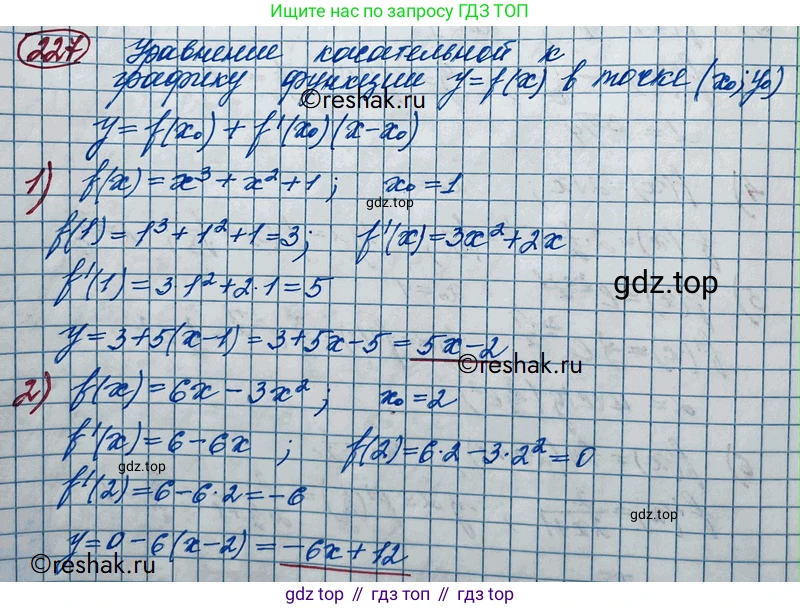 Ищите нас по запросу ГДЗ ТОП
227. Уравнение касательной к
графику функции y=f(x) в точке (x₀; y₀)
©reshak.ru
y=f(x₀)+f'(x₀)(x-x₀)
1) f(x)=x³+x²+1; x₀=1
gdz.top
f(1)=1³+1²+1=3; f'(x)=3x²+2x
f'(1)=3·1²+2·1=5
gdz.top
y=3+5(x-1)=3+5x-5=5x-2
©reshak.ru
2) f(x)=6x-3x²; x₀=2
f'(x)=6-6x; f(2)=6·2-3·2²=0
gdz.top
f'(2)=6-6·2=-6
gdz.top
y=0-6(x-2)=-6x+12
©reshak.ru
gdz top // gdz.top // gdz top